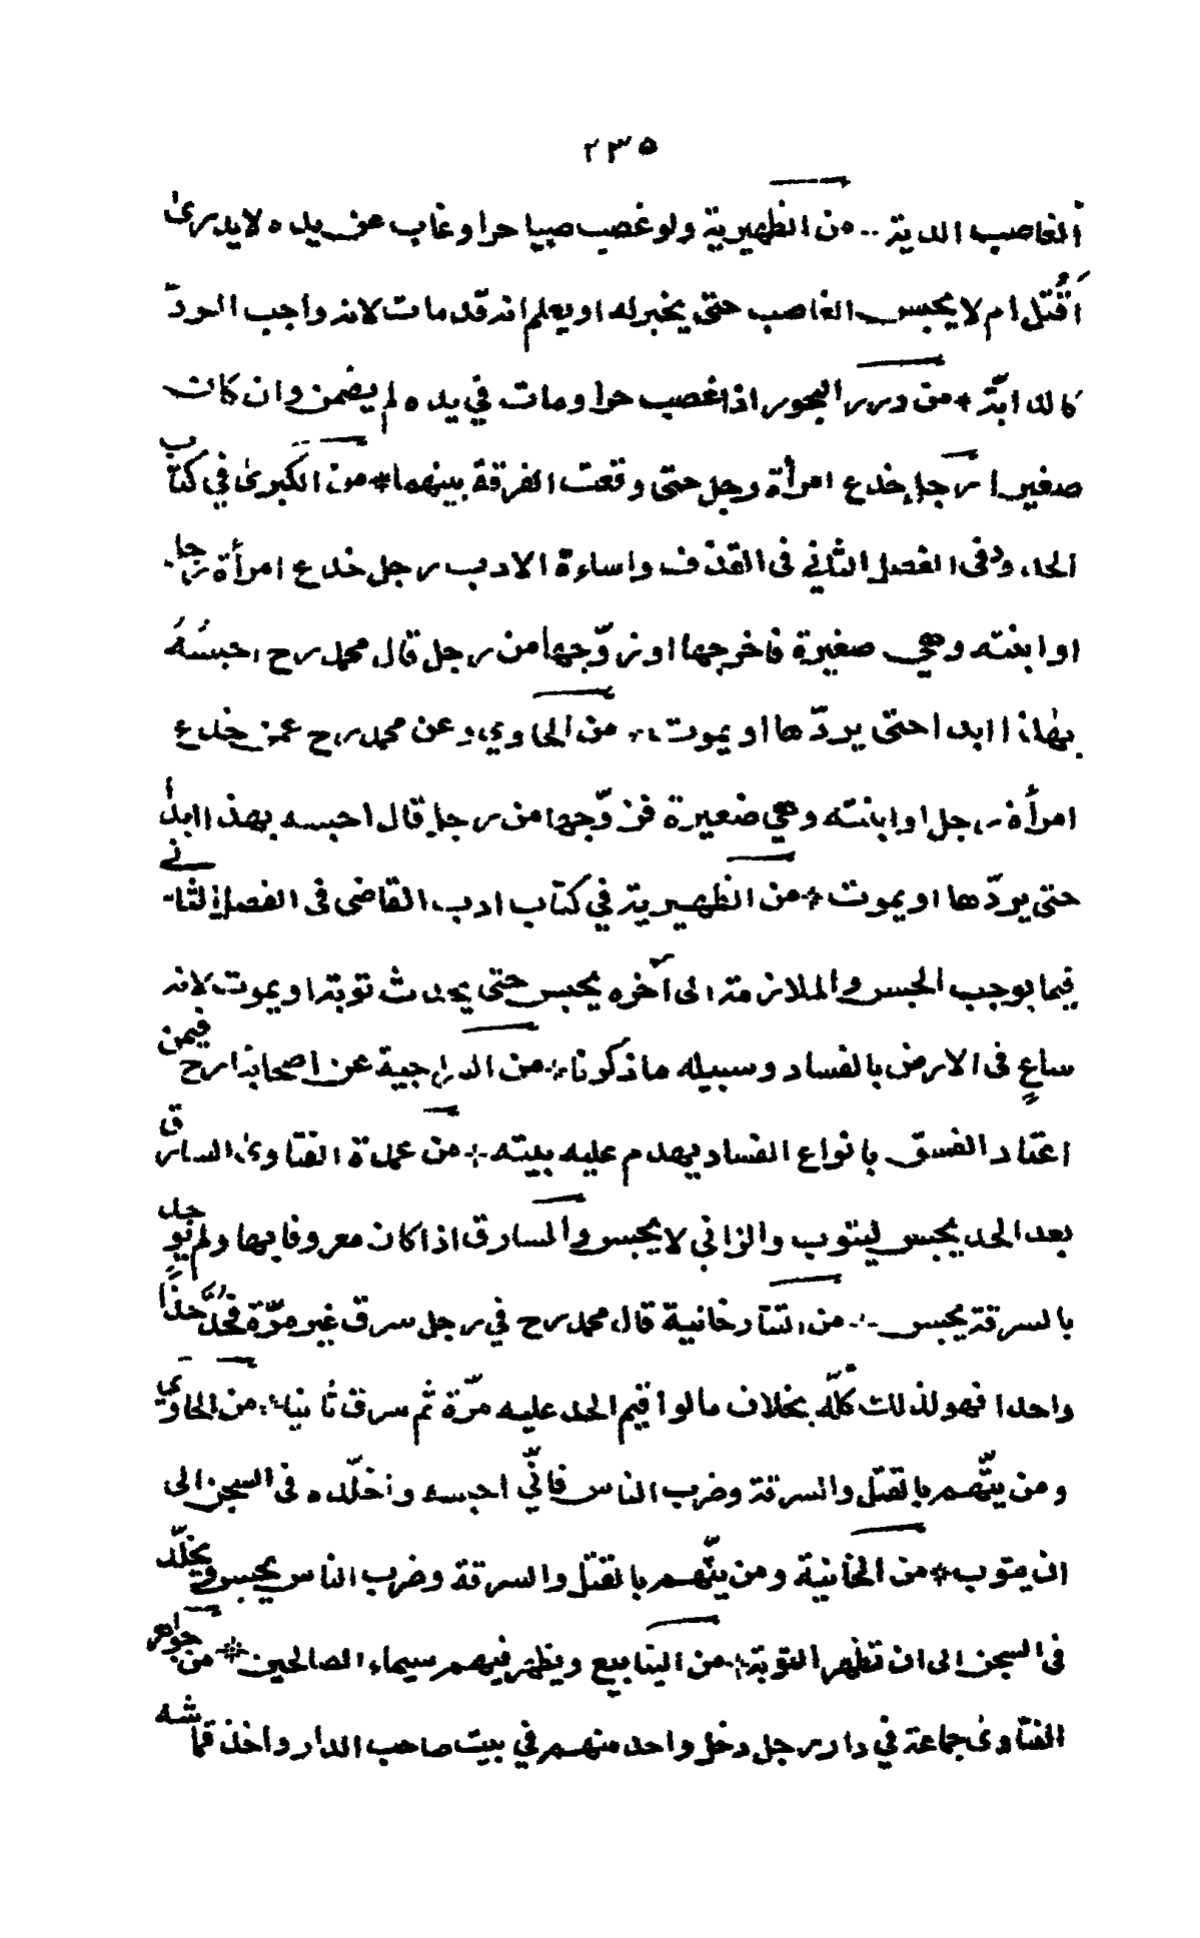 ٢٣٥
الغاصب الدية ∴ من الظهيرية ولو غصب صبيا حرا وغاب عن يده لا يدرى
أقُتل ام لا يحبس الغاصب حتى يخبر له او يعلم انه قد مات لانه واجب الردّ
كالدابّة * من درر البحور اذا غصب حرا ومات في يده لم يضمن وان كان
صغيرا رجل خدع امرأة رجل حتى وقعت الفرقة بينهما * من الكبرى في كتاب
الحدود فى الفصل الثاني فى القذف واساءة الادب رجل خدع امرأة رجل
او ابنته وهي صغيرة فاخرجها او زوّجها من رجل قال محمد رح احبسُهُ
بهٰذا ابدا حتى يردّها او يموت ∴ من الحاوي وعن محمد رح عمن خدع
امرأة رجل او ابنته وهي صغيرة فزوّجها من رجل قال احبسه بهذا ابدًا
حتى يردّها او يموت * من الظهيرية في كتاب ادب القاضى فى الفصل الثاني
فيما يوجب الحبس والملازمة الى آخره يحبس حتى يحدث توبة او يموت لانه
ساعٍ فى الارض بالفساد وسبيله ما ذكرنا * من السراجية عن اصحابنا رح فيمن
اعتاد الفسق بانواع الفساد يهدم عليه بيته ∴ من عمدة الفتاوى السارق
بعد الحد يحبس ليتوب والزاني لا يحبس والسارق اذا كان معروفا بها ولم يوجد
بالسرقة يحبس ∴ من التتارخانية قال محمد رح في رجل سرق غير مرّة فحُدَّ حدًّا
واحدا فهو لذلك كلّه بخلاف ما لو اقيم الحد عليه مرّة ثم سرق ثانيا ∴ من الحاوي
ومن يتّهم بالقتل والسرقة وضرب الناس فانّي احبسه واخلّده فى السجن الى
ان يتوب * من الخانية ومن يتّهم بالقتل والسرقة وضرب الناس يحبس ويخلّد
فى السجن الى ان تظهر التوبة ∴ من الينابيع ويظهر فيهم سيماء الصالحين * من جواهر
الفتاوى جماعة في دار رجل دخل واحد منهم في بيت صاحب الدار واخذ قماشه